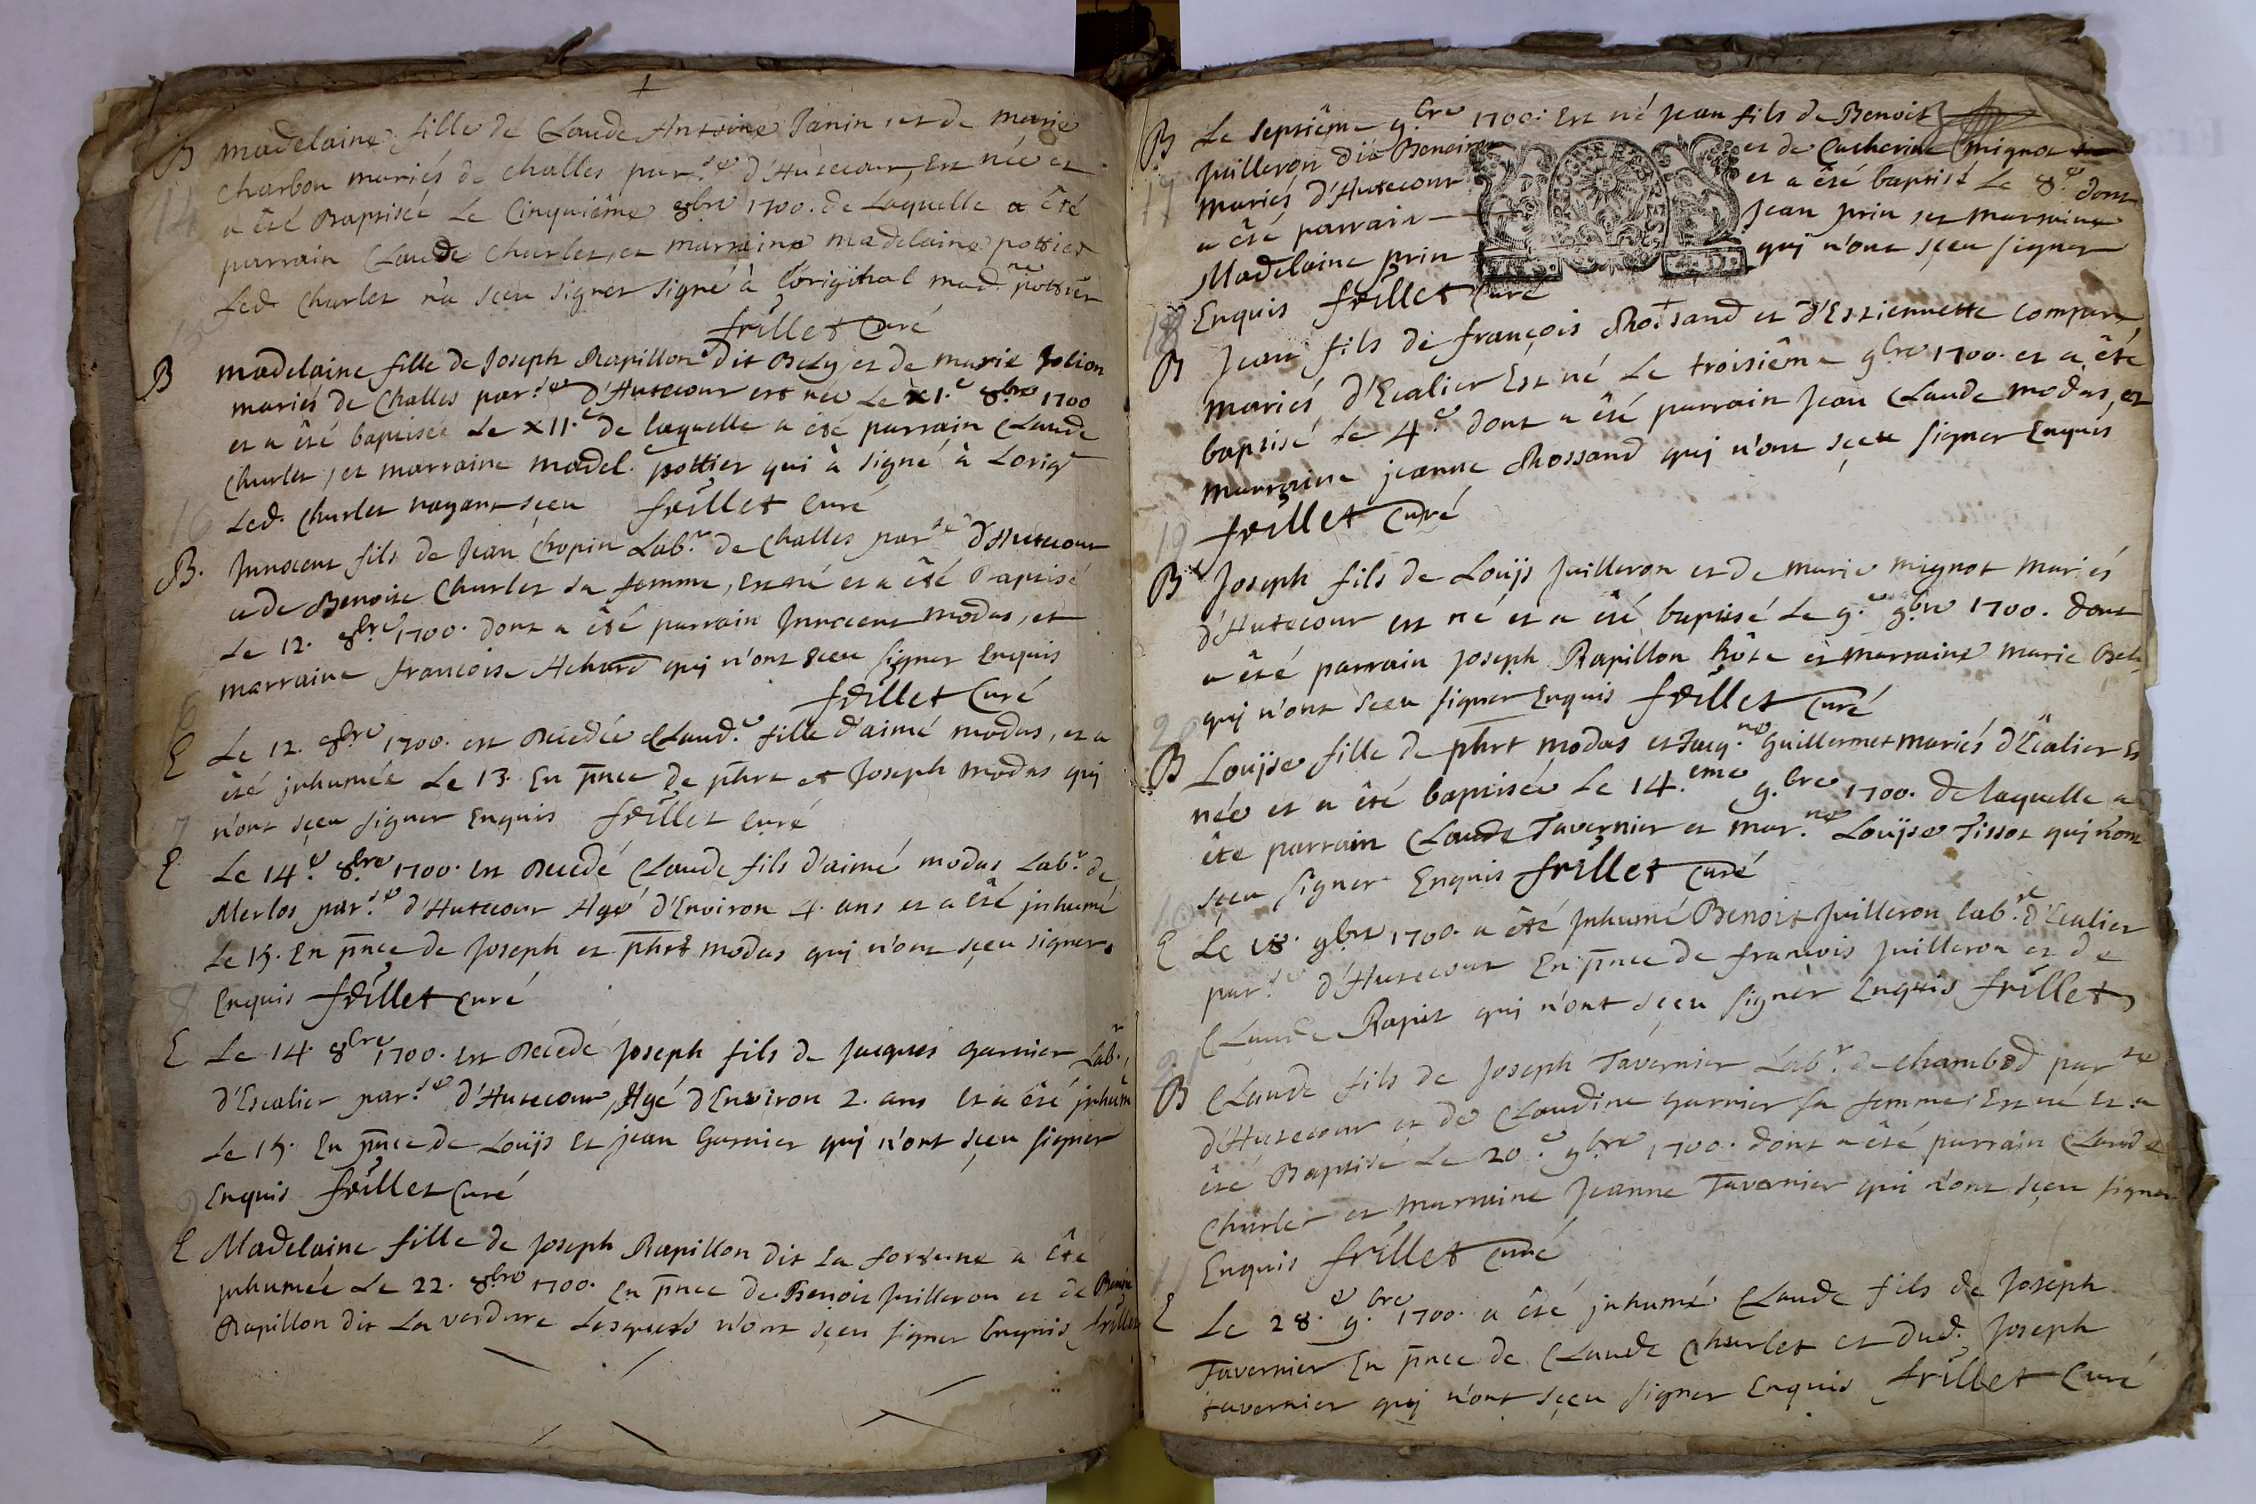 B Madelaine fille de Claude Antoine Janin, et de marie
Charbon mariés de challes par.se d'Hutecour, Est née et
14 a êté Baptisée Le Cinquiême 8bre 1700. de Laquelle a êté
parrain Claude Charlet, et marraine madelaine pottier
Led. Charlet n'a sceu signer signé à l'original mad.ne pottier
15 frillet Curé
B madelaine fille de Joseph Rapillon dit Bely et de marie Jolion
mariés de Challes par.se d'Hutecour est née Le XI.e 8bre 1700
et a êté baptisée Le XII.e de laquelle a êté parrain Claude
Charlet, et marraine madel.e pottier qui à signé à Lorig.l
16 Led. Charlet nayant sceu frillet Curé
B. Innocent fils de Jean Chopin Lab.r de Challes par.se d'Hutecour
et de Benoite Charlet sa femme, Est né et a êté Baptisé
Le 12. 8bre 1700. dont a êté parrain Innocent modas, et
marraine francoise Achard quj n'ont sceu signer Enquis
6 frillet Curé
E Le 12. 8bre 1700. est Decedée Claud.e fille d'aimé modas, et a
êté jnhumée Le 13. En pnce de phrt et Joseph modas quj
7 n'ont sçeu signer Enquis frillet Curé
E Le 14.e 8bre 1700. est Decedé Claude fils d'aimé modas Lab.r de
Merlos par.se d'Hutecour Agé d'Environ 4. ans et a êté jnhumé
Le 15. En pnce de Joseph et phrt modas quj n'ont sçeu signer
8 Enquis frillet Curé
E Le 14. 8bre 1700. est Decedé Joseph fils de Jacques Garnier Lab.r
d'Escalier par.se d'Hutecour, Agé d'Environ 2. ans Et a êté jnhum
Le 15. En pnce de Louïs Et jean Garnier quj n'ont sçeu signer
9 Enquis frillet Curé
E Madelaine fille de Joseph Rapillon dit La fortune a êté
jnhumée Le 22. 8bre 1700. En pnce de Benoit Juilleron et de
Rapillon dit La verdure Lesquels n'ont sçeu signer Enquis frillet
B Le septiême 9.bre 1700. Est né Jean fils de Benoit
Juilleron dit Benoiton et de Catherine mignot
17 mariés d'Hutecour et a êté baptisé Le 8.e dont
a êté parrain Jean prin et marraine
Madelaine prin quj n'ont sçeu signer
18 Enquis frillet Curé
B Jean fils de françois Rossand et d'Estiennette Compan
mariés d'Ecalier Est né Le troisiême 9bre 1700. et a êté
baptisé Le 4.e dont a êté parrain Jean Claude modas, et
marraine jeanne Rossand quj n'ont sçeu signer Enquis
19 frillet Curé
B Joseph fils de Louïs Juilleron et de marie mignot mariés
d'Hutecour est né et a êté baptisé Le 9.e 9bre 1700. dont
a êté parrain Joseph Rapillon hôte et marraine marie
quj n'ont sceu signer Enquis frillet Curé
20
B Louïse fille de phrt modas et Jacq.ne Guillermet mariés d'Êcalier Es
née et a êté baptisée Le 14.eme 9.bre 1700. de laquelle a
ête parrain Claude Tavernier et mar.ne Louïse Tissot quj n'ont
10 sçeu signer Enquis frillet Curé
E Le 18. 9bre 1700. a êté Jnhumé Benoit Juilleron lab.r d'Ecalier
par.se d'Hutecour En pnce de francois Juilleron et de
Claude Rapit qui n'ont sçeu signer Enquis frillet
21
B Claude fils de Joseph Tavernier Lab.r de chambod par.se
d'Hutecour et de Claudine Garnier sa femme Est né Et a
êté Baptisé Le 20.e 9bre 1700. dont a êté parrain Claude
Charlet et marraine Jeanne Tavernier qui n'ont sçeu signer
11 Enquis frillet Curé
E Le 28.e 9.bre 1700. a êté jnhumé Claude fils de Joseph
Tavernier En pnce de Claude Charlet et dud. Joseph
tavernier quj n'ont sçeu signer Enquis frillet Curé